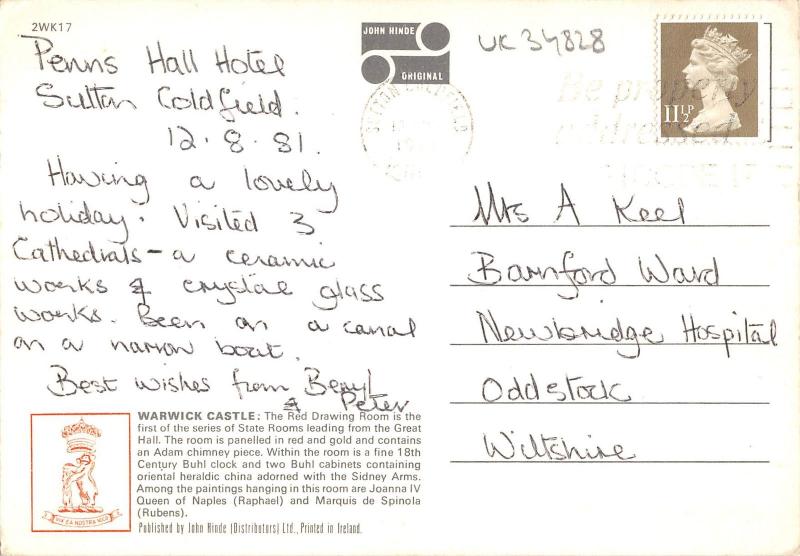 2WK17
Penns Hall Hotel
Sutton Coldfield.
12.8.81.
Having a lovely
holiday. Visited 3
Cathedrals - a ceramic
works & crystal glass
works. Been on a canal
on a narrow boat.
Best wishes from Beryl
& Peter
JOHN HINDE
ORIGINAL
UK 34828
SUTTON COLDFIELD
Be properly
addressed
11½P
Mrs A Keel
Barnford Ward
Newbridge Hospital
Oddstock
Wiltshire
WARWICK CASTLE: The Red Drawing Room is the
first of the series of State Rooms leading from the Great
Hall. The room is panelled in red and gold and contains
an Adam chimney piece. Within the room is a fine 18th
Century Buhl clock and two Buhl cabinets containing
oriental heraldic china adorned with the Sidney Arms.
Among the paintings hanging in this room are Joanna IV
Queen of Naples (Raphael) and Marquis de Spinola
(Rubens).
Published by John Hinde (Distributors) Ltd., Printed in Ireland.
VIX EA NOSTRA VOCO